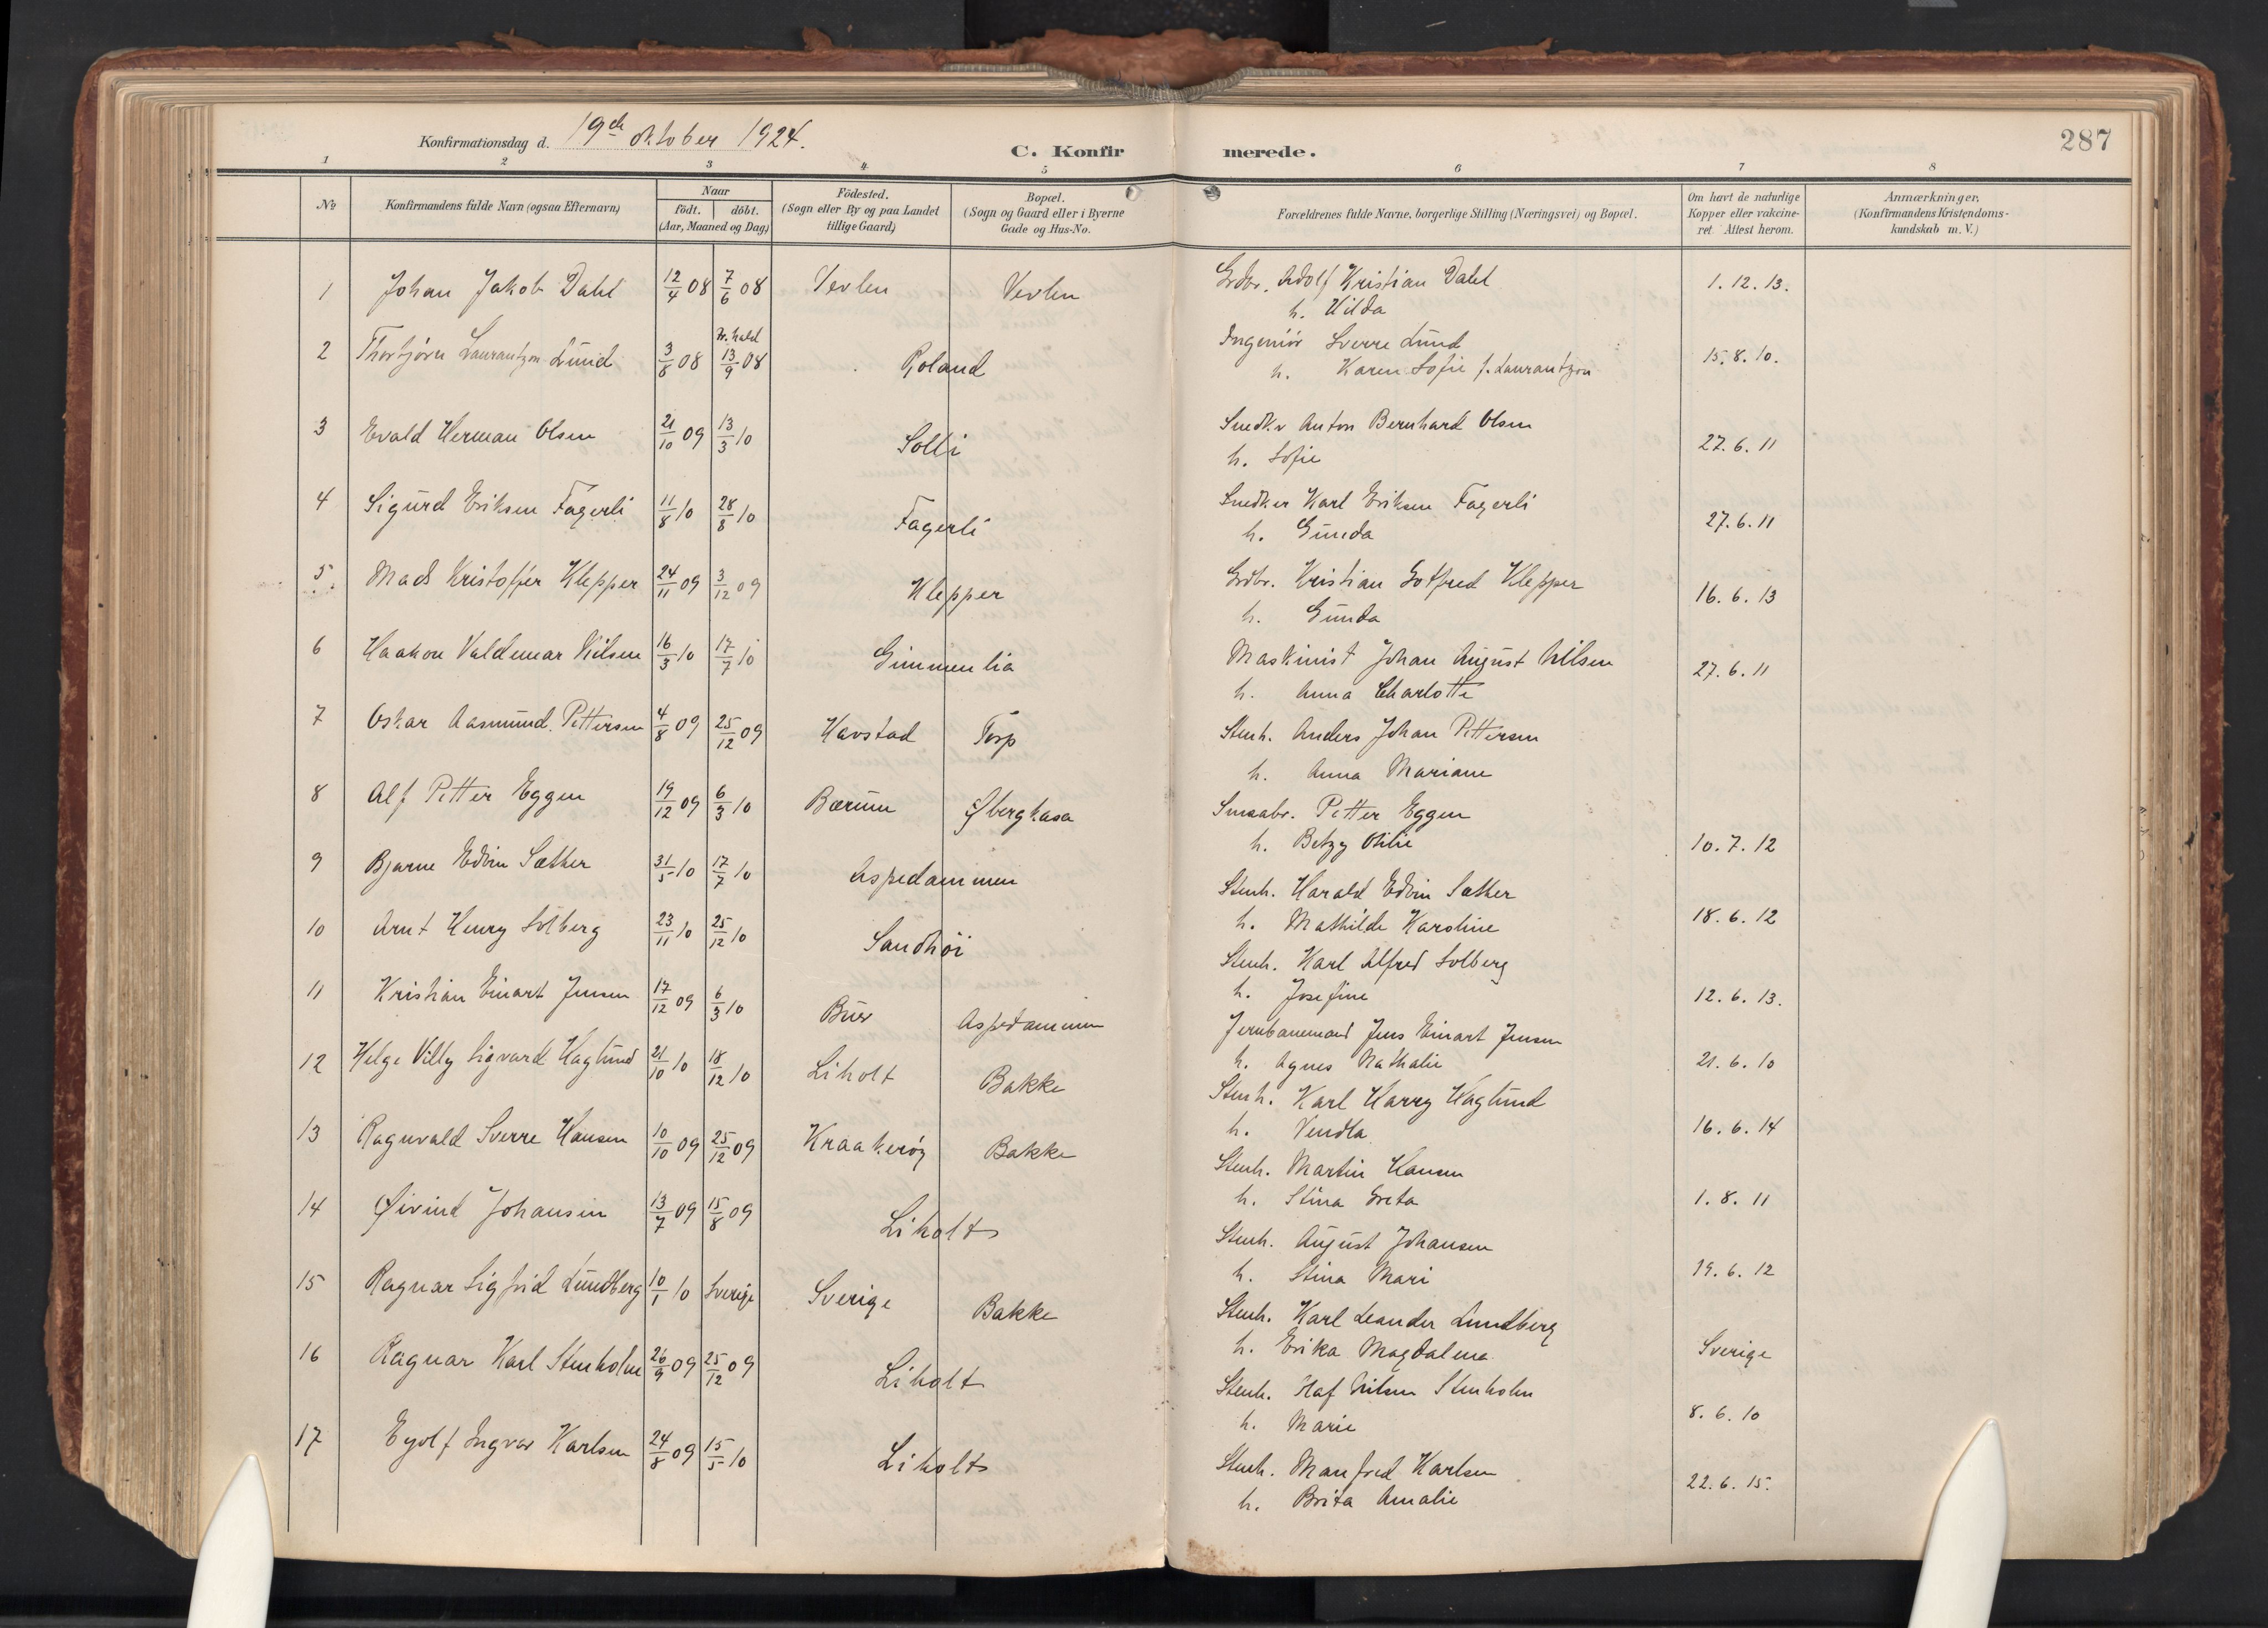 Konfirmationsdag d. 19de oktober 1924.
C. Konfir merede. 287
1 2 3 4 5 6 7 8
No
Konfirmandens fulde Navn (ogsaa Efternavn)
Naar
födt. döbt.
(Aar, Maaned og Dag)
Födested.
(Sogn eller By og paa Landet
tillige Gaard)
Bopæl.
(Sogn og Gaard eller i Byerne
Gade og Hus-No.
Forældrenes fulde Navne, borgerlige Stilling (Næringsvei) og Bopæl.
Om havt de naturlige
Kopper eller vakcine-
ret. Attest herom.
Anmærkninger,
(Konfirmandens Kristendoms-
kundskab m. V.)
1 Johan Jakob Dahl 12/4 08 7/6 08 Vevlen Vevlen Grdbr. Adolf Kristian Dahl 1.12.13.
h. Hilda
2 Thorbjörn Laurantzon Lund 3/8 08 Fr.hald 13/9 08 Roland Ingeniör Sverre Lund 15.8.10.
h. Karen Sofie f. Laurantzon
3 Evald Herman Olsen 21/10 09 13/3 10 Solli Snedker Anton Bernhard Olsen 27.6.11
h. Sofie
4 Sigurd Eriksen Fagerli 11/8 10 28/8 10 Fagerli Snedker Karl Eriksen Fagerli 27.6.11
h. Gunda
5. Mads Kristoffer Klepper 24/11 09 3/12 09 Klepper Grdbr. Kristian Gotfred Klepper 16.6.13
h. Gunda
6 Haakon Valdemar Nilsen 16/3 10 17/7 10 Gimmenlia Maskinist Johan August Nilsen 27.6.11
h. Anna Charlotte
7 Oskar Aasmund Pettersen 4/8 09 25/12 09 Havstad Torp Stenh. Anders Johan Pettersen
h. Anna Mariane
8 Alf Petter Eggen 19/12 09 6/3 10 Bærum Øberghasa Smaabr. Petter Eggen
h. Betzy Otilie 10.7.12
9 Bjarne Edvin Sæther 31/5 10 17/7 10 Aspedammen Stenh. Harald Edvin Sæther
h. Mathilde Karoline 18.6.12
10 Arnt Henry Solberg 23/11 10 25/12 10 Sandhöi Stenh. Karl Alfred Solberg
h. Josefine 12.6.13.
11 Kristian Einart Jensen 17/12 09 6/3 10 Buer Aspedammen Jernbanemand Jens Einart Jensen
h. Agnes Nathalie 21.6.10
12 Helge Villy Sigvard Haglund 21/10 10 18/12 10 Liholt Bakke Stenh. Karl Harry Haglund
h. Vendla 16.6.14
13 Ragnvald Sverre Hansen 10/10 09 25/12 09 Kraakeröy Bakke Stenh. Martin Hansen
h. Stina Greta 1.8.11
14 Øivind Johansen 13/7 09 15/8 09 Liholt Stenh. August Johansen
h. Stina Mari 19.6.12
15 Ragnar Sigfrid Lundberg 10/1 10 Sverige Sverige Bakke Stenh. Karl Leander Lundberg
h. Erika Magdalena Sverige
16 Ragnar Karl Stenholm 26/9 09 25/12 09 Liholt Stenh. Olaf Nilsen Stenholm
h. Marie 8.6.10
17 Eyolf Ingvar Karlsen 24/8 09 15/5 10 Liholt Stenh. Manfred Karlsen
h. Brita Amalie 22.6.15.